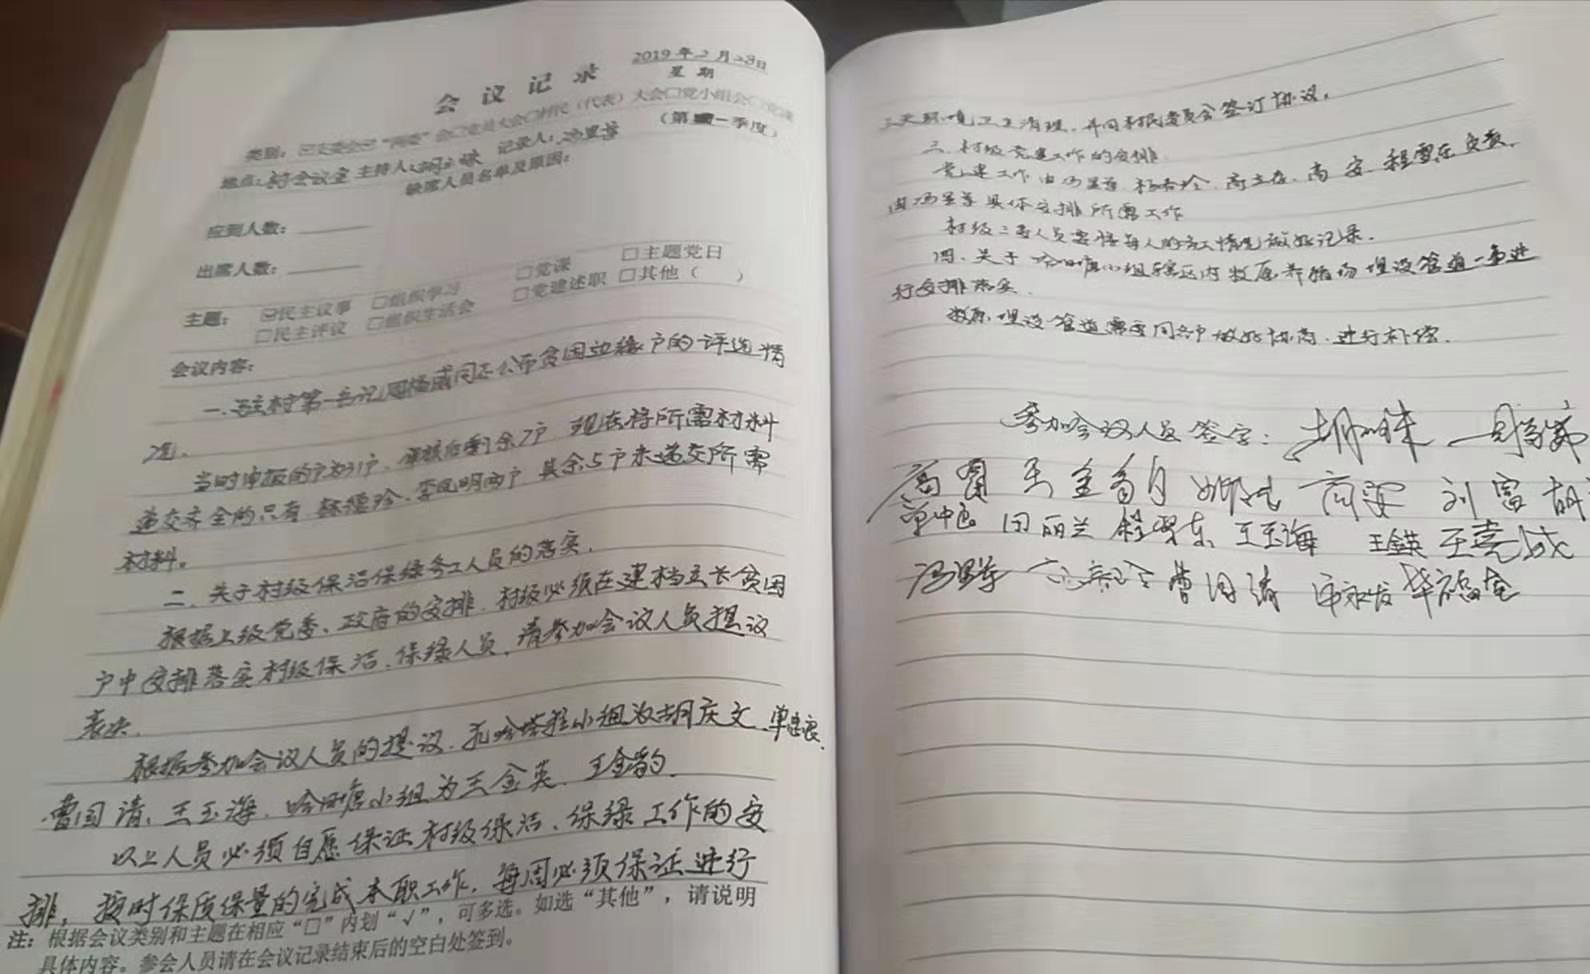 会议记录
2019年2月28日
星期
类别：☑支委会☑“两委”会□党员大会□村民（代表）大会□党小组会□党课
（第一季度）
地点：村会议室 主持人： 记录人：
缺席人员名单及原因：
应到人数：
出席人数：
主题： ☑民主议事 □组织学习 □党课 □主题党日
□民主评议 □组织生活会 □党建述职 □其他（ ）
会议内容：
一、驻村第一书记同志公布贫困边缘户的评选情
况。
当时申报的户为31户，审核后剩余7户 现在将所需材料
递交齐全的只有 李凤明两户 其余5户未递交所需
材料。
二、关于村级保洁保绿务工人员的落实．
根据上级党委、政府的安排．村级必须在建档立长贫困
户中安排落实村级保洁、保绿人员，请参加会议人员提议
表决．
根据参加会议人员的提议．小组为胡庆文、单忠良、
曹国清、王玉海．小组为王金英、王金豹．
以上人员必须自愿保证村级保洁、保绿工作的安
排，按时保质保量的完成本职工作．每周必须保证进行
注：根据会议类别和主题在相应“□”内划“√”，可多选。如选“其他”，请说明
具体内容。参会人员请在会议记录结束后的空白处签到。
三天环境卫生清理．并同村民委员会签订协议．
三、村级党建工作的安排．
党建工作由 高安、程雪东负责．
由 具体安排所需工作
村级 人员要将每人的务工情况做好记录．
四、关于 小组辖区内 养猪场埋设管道一事进
行安排落实．
埋设管道需要同 户做好协商．进行补偿．
参加会议人员签字：
高安 刘富 胡
单忠良 田丽兰 程雪东 王玉海 王金英
曹国清